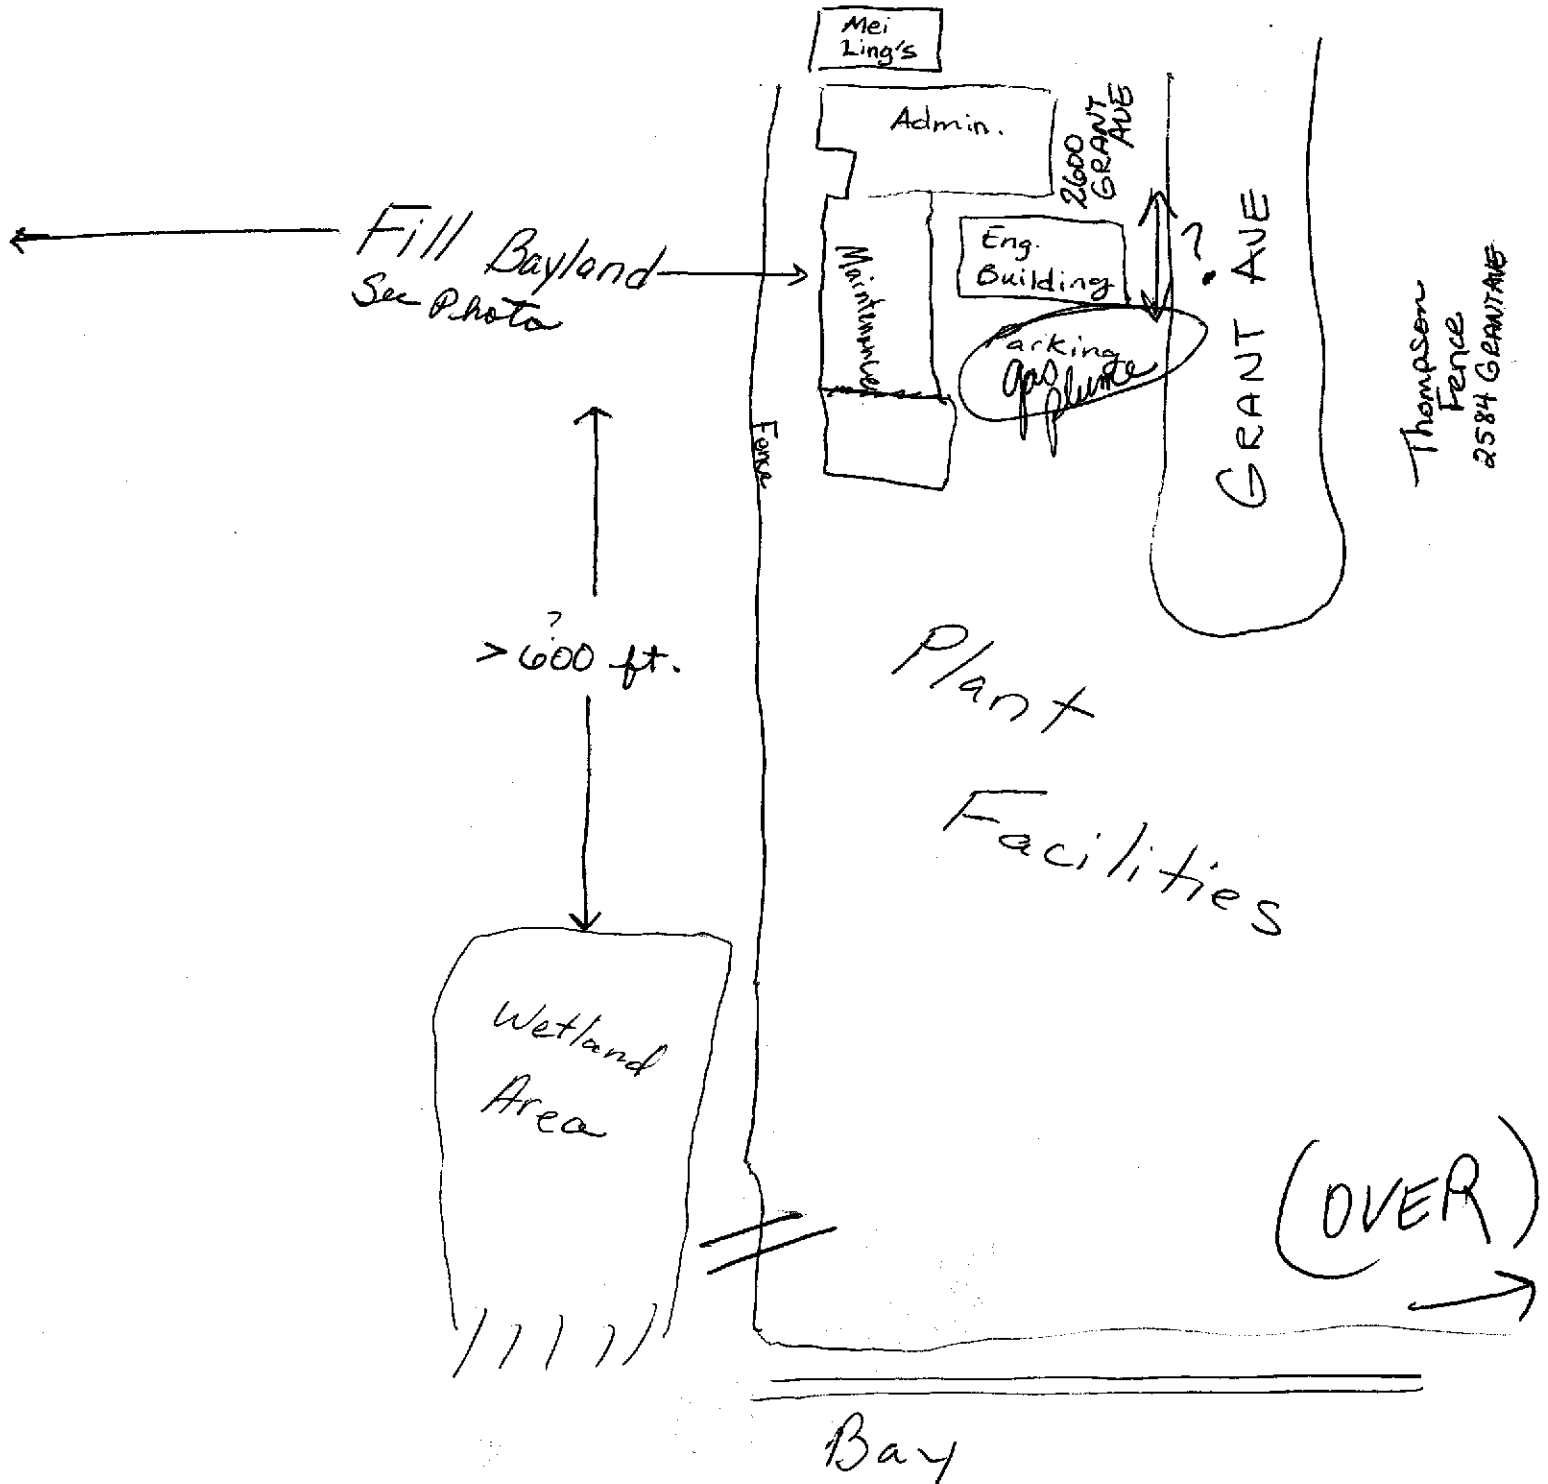 Mei
Ling's
Admin.
2600
GRANT
AVE
Fill Bayland
See Photo
Maintenance
Eng.
Building
?
Parking
gas
plume
GRANT AVE
Thompson
Fence
2584 GRANT AVE
Fence
?
> 600 ft.
Plant
Facilities
Wetland
Area
(OVER)
Bay